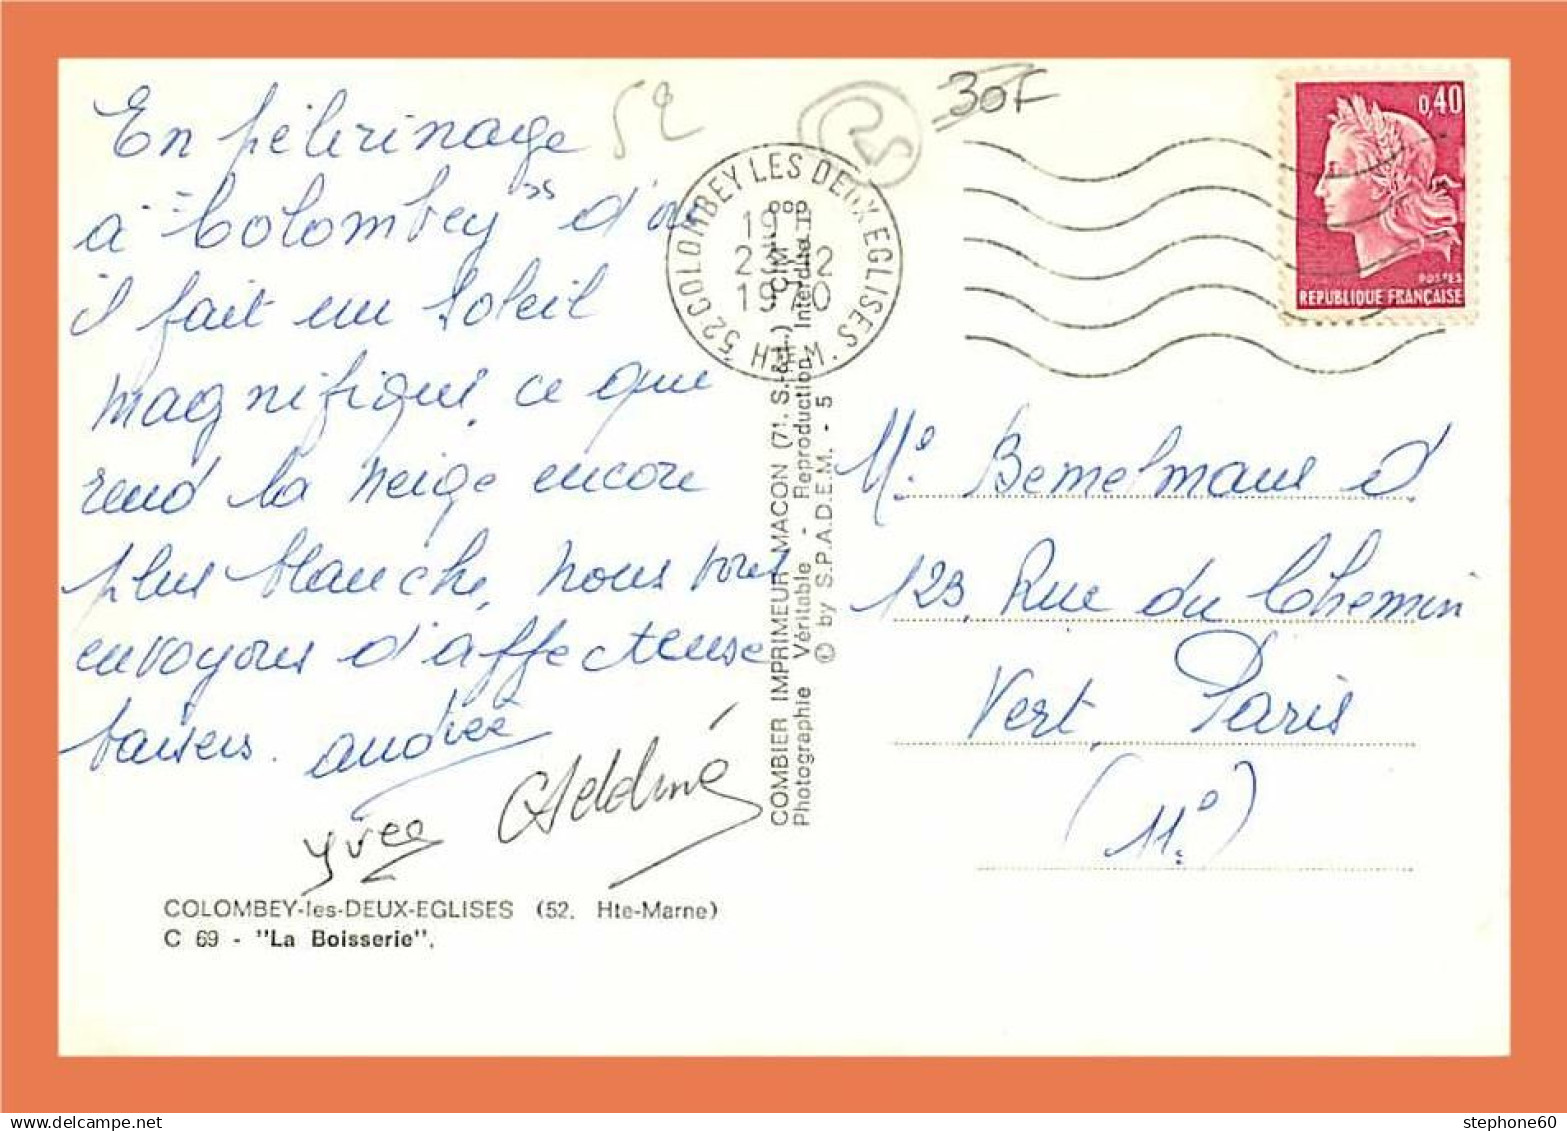 En pélérinage
à "Colombey" d'où
il fait un soleil
magnifique, ce que
rend la neige encore
plus blanche, nous vous
envoyons d'affectueuse
baisers. andrée
yves
52
30F
52 COLOMBEY LES DEUX EGLISES HTE M.
1970
0,40
POSTES
REPUBLIQUE FRANÇAISE
COMBIER IMPRIMEUR MACON (71. S.-&-L.) "CIM"
Photographie Véritable - Reproduction Interdite
© by S.P.A.D.E.M. - 5
Mr. Bemelmans
123, Rue du Chemin
Vert, Paris
(11e)
COLOMBEY-les-DEUX-EGLISES (52. Hte-Marne)
C 69 - "La Boisserie".
stephone60